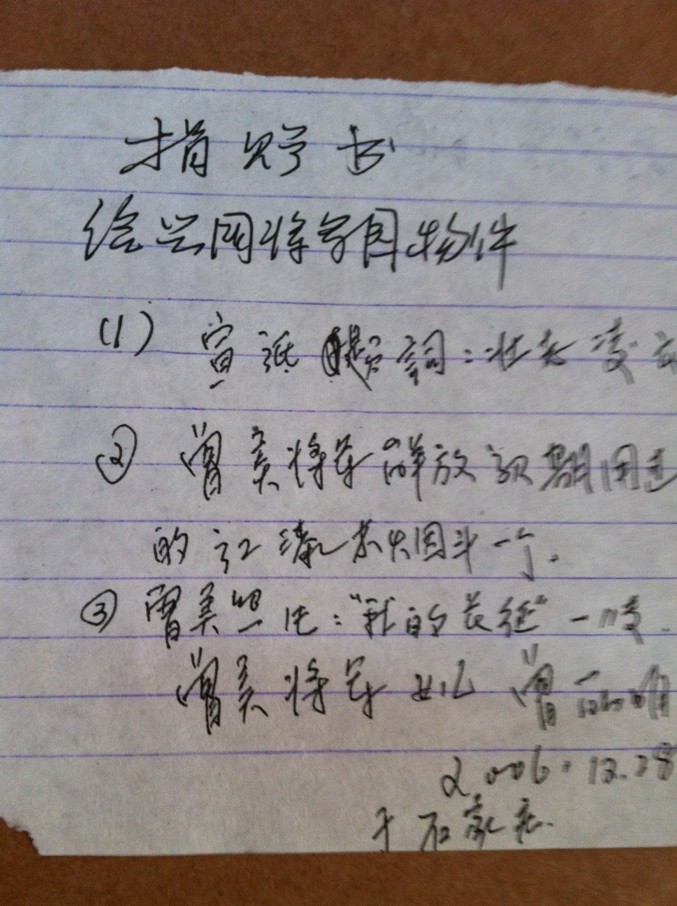 捐赠书
给兴国将军园物件
(1) 宣纸题詞:壮志凌云
② 曾美将军解放初期用过
的红漆木烟斗一个.
③ 曾美照片:"我的长征"一
曾美将军女儿 曾
2006.12.28
于石家庄.